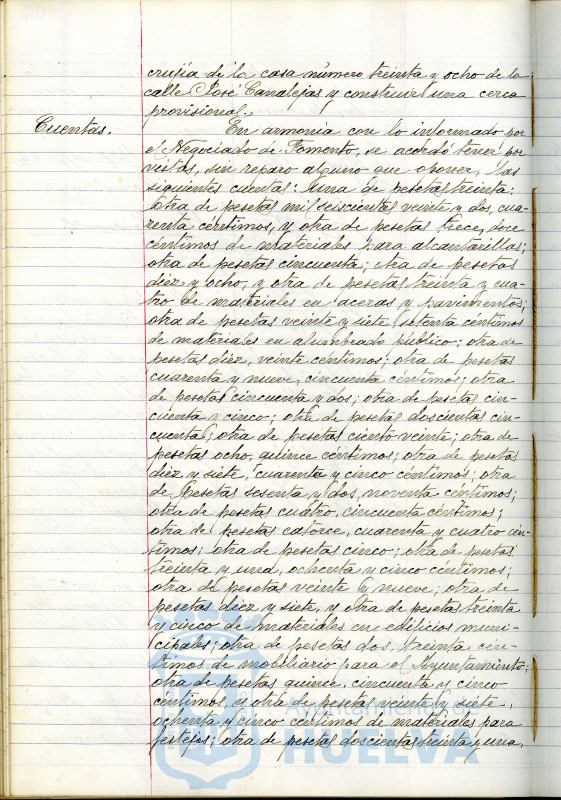 crujía de la casa número treinta y ocho de la
calle José Canalejas y construir una cerca
provisional.
Cuentas.
En armonía con lo informado por
el Negociado de Fomento, se acordó tener por
vistas, sin reparo alguno que oponer, las
siguientes cuentas: Una de pesetas treinta;
otra de pesetas mil seiscientas veinte y dos, cua-
renta céntimos, y otra de pesetas trece, doce
céntimos de materiales para alcantarillas;
otra de pesetas cincuenta; otra de pesetas
diez y ocho, y otra de pesetas treinta y cua-
tro de materiales en aceras y pavimentos;
otra de pesetas veinte y siete, setenta céntimos
de materiales en alumbrado público; otra de
pesetas diez, veinte céntimos; otra de pesetas
cuarenta y nueve, cincuenta céntimos; otra
de pesetas cincuenta y dos; otra de pesetas cin-
cuenta y cinco; otra de pesetas doscientas cin-
cuenta; otra de pesetas ciento veinte; otra de
pesetas ocho, quince céntimos; otra de pesetas
diez y siete, cuarenta y cinco céntimos; otra
de pesetas sesenta y dos, noventa céntimos;
otra de pesetas cuatro, cincuenta céntimos;
otra de pesetas catorce, cuarenta y cuatro cén-
timos; otra de pesetas cinco; otra de pesetas
treinta y una, ochenta y cinco céntimos;
otra de pesetas veinte y nueve; otra de
pesetas diez y siete, y otra de pesetas treinta
y cinco de materiales en edificios muni-
cipales; otra de pesetas dos, treinta cén-
timos de mobiliario para el Ayuntamiento;
otra de pesetas quince, cincuenta y cinco
céntimos, y otra de pesetas veinte y siete,
ochenta y cinco céntimos de materiales para
festejos; otra de pesetas doscientas treinta y una,
Ayuntamiento de
HUELVA